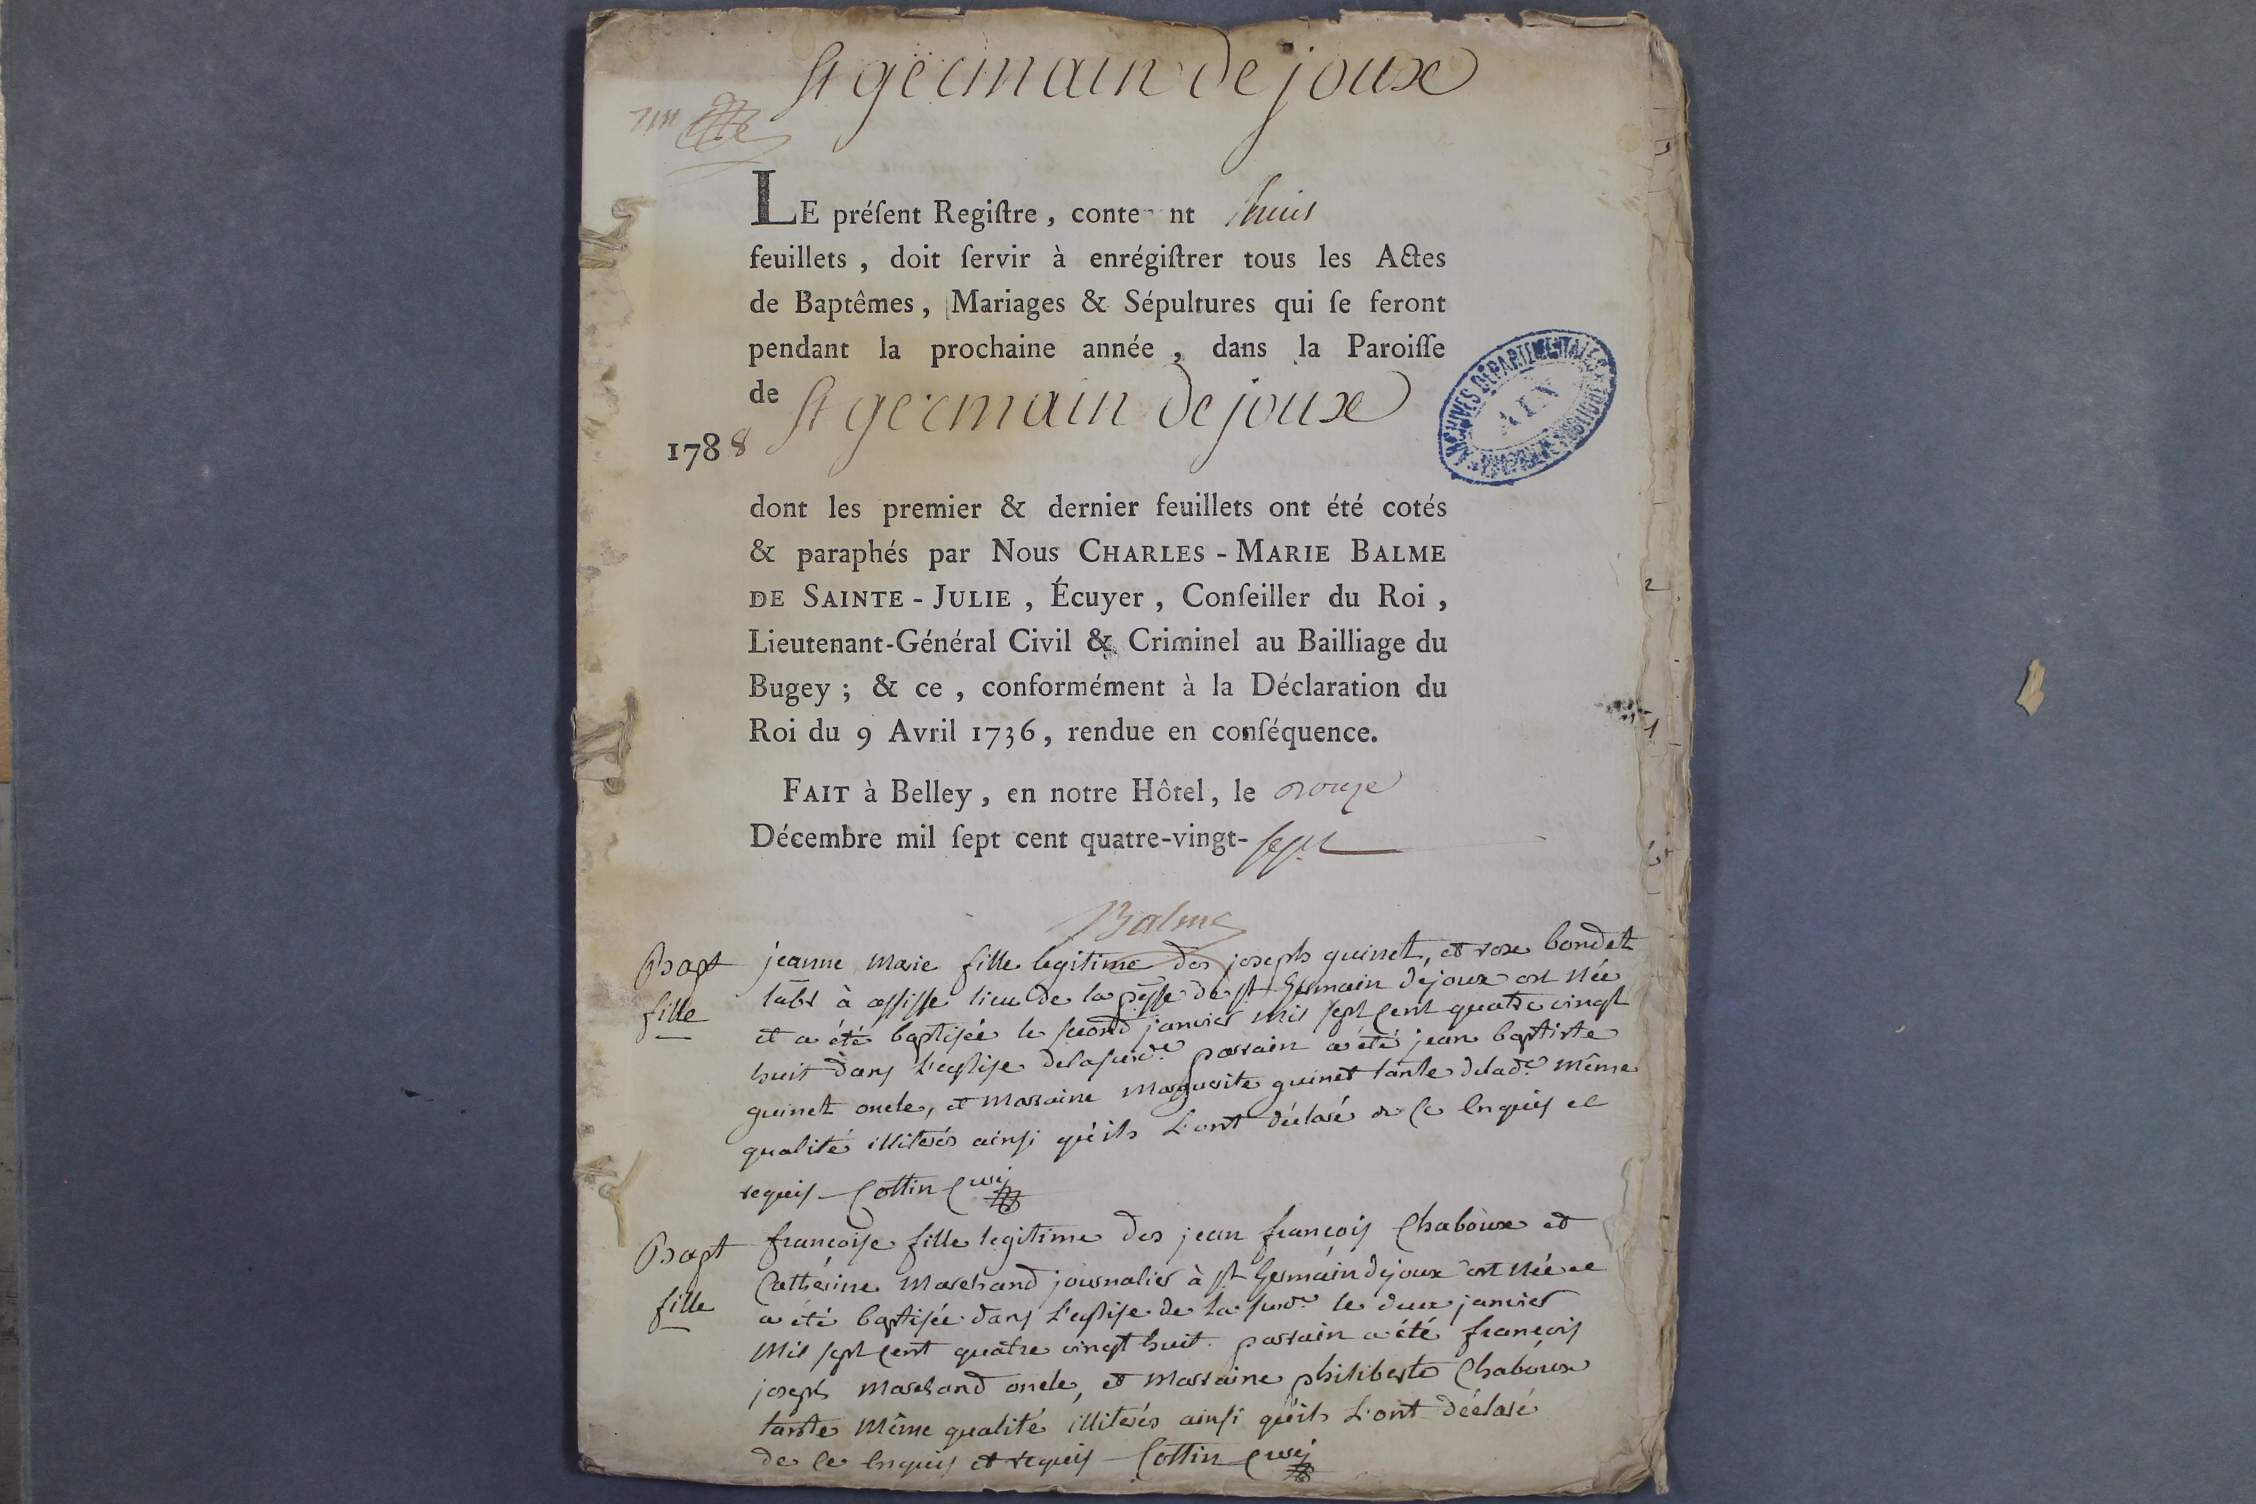 St germain de joux
LE préſent Regiſtre, conte nt huit
feuillets, doit ſervir à enrégiſtrer tous les Actes
de Baptêmes, Mariages & Sépultures qui ſe feront
pendant la prochaine année, dans la Paroiſſe
de St germain de joux
1788
ARCHIVES DÉPARTEMENTALES
AIN
dont les premier & dernier feuillets ont été cotés
& paraphés par Nous CHARLES-MARIE BALME
DE SAINTE-JULIE, Écuyer, Conſeiller du Roi,
Lieutenant-Général Civil & Criminel au Bailliage du
Bugey; & ce, conformément à la Déclaration du
Roi du 9 Avril 1736, rendue en conſéquence.
FAIT à Belley, en notre Hôtel, le onze
Décembre mil ſept cent quatre-vingt-sept
Balme
Bapt jeanne marie fille legitime des joseph guinet, et rose bondet
fille labr à essisse lieu de la psse de st Germain dejoux est née
et a été baptisée le second janvier mil sept cent quatre vingt
huit dans l'eglise de la susde. parrain a été jean baptiste
guinet oncle, et marraine marguerite guinet tante de lade. même
qualité illiterés ainsi qu'ils l'ont déclaré de ce enquis et
requis Cottin curé
Bapt françoise fille legitime des jean françois Chaboux et
fille Catherine marchand journalier à st Germain dejoux est née et
a été baptisée dans l'eglise de la susde le deux janvier
mil sept cent quatre vingt huit. parrain a été françois
joseph marchand oncle, et marraine philiberte Chaboux
tante même qualité illiterés ainsi qu'ils l'ont déclaré
de ce enquis et requis Cottin curé